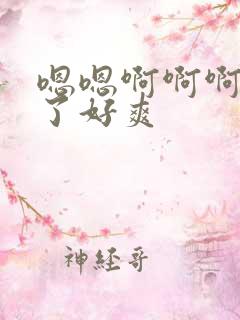 嗯嗯啊啊啊
了好爽
神经哥